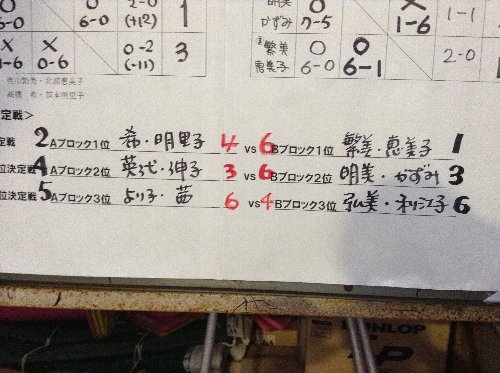 明美 O X 1-1
6-0 6-0 (+12) 1 かずみ 7-5 1-6
X X 0-2 3 ③繁美 O O 2-0
0-6 (-11) 恵美子 6-0 6-1
定戦>
定戦 2 Aブロック1位 希・明里子 4 vs 6 Bブロック1位 繁美・恵美子 1
位決定戦 4 Aブロック2位 英代・伸子 3 vs 6 Bブロック2位 明美・かずみ 3
位決定戦 5 Aブロック3位 より子・茜 6 vs 4 Bブロック3位 弘美・利江子 6
DUNLOP